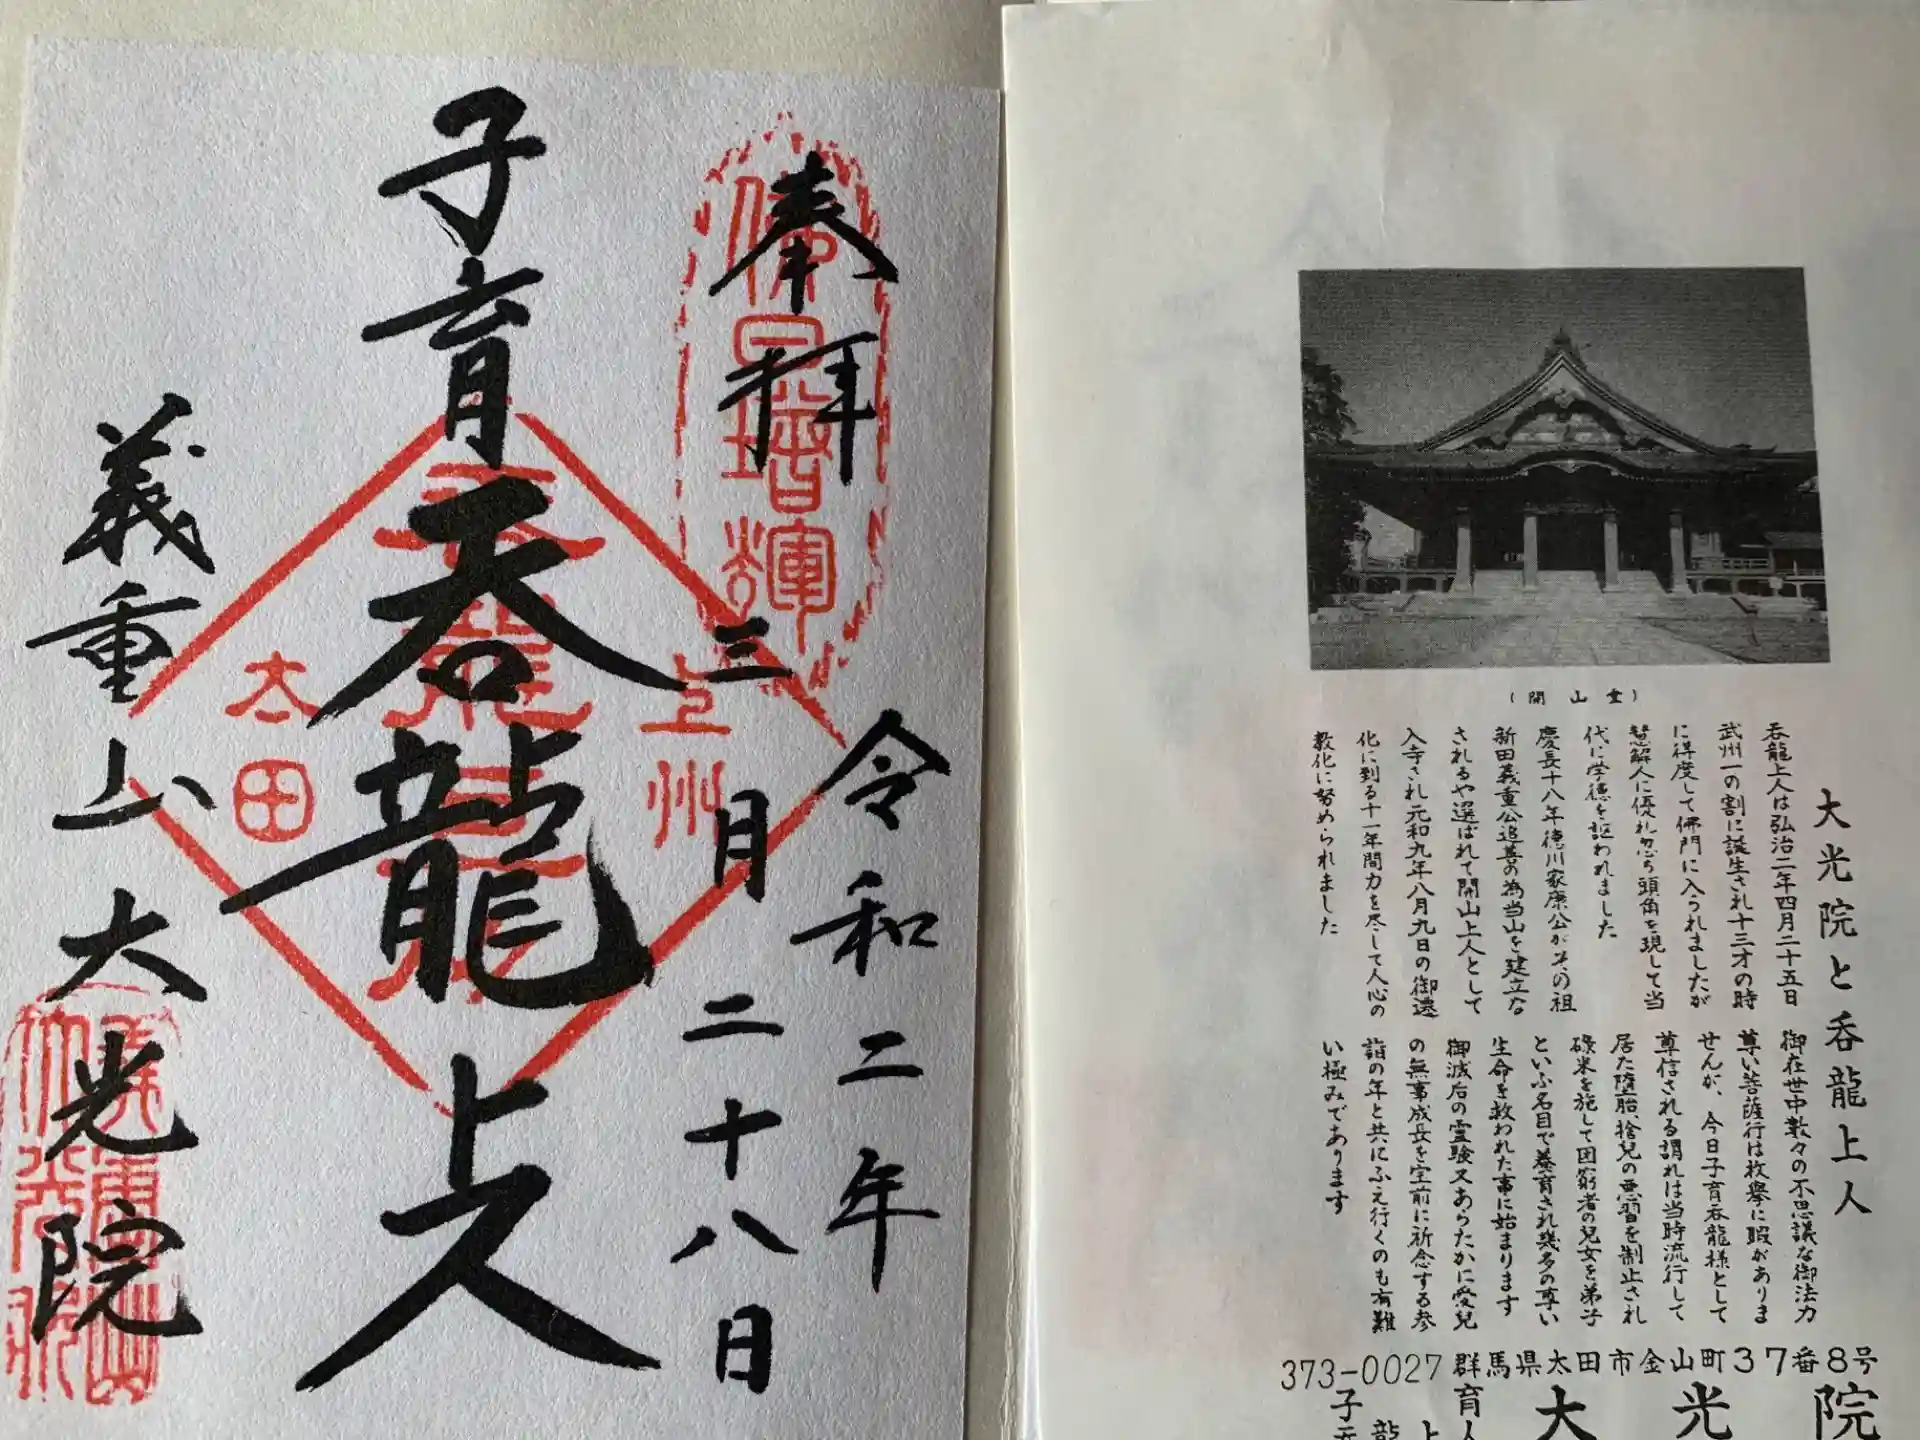 奉拝
令和二年
三月二十八日
子育呑龍上人
義重山大光院
上州
太田
（開山堂）
大光院と呑龍上人
呑龍上人は弘治二年四月二十五日
武州一の割に誕生され十三才の時
に得度して佛門に入られましたが
慧解人に優れ忽ち頭角を現して当
代に学徳を謳われました
慶長十八年徳川家康公がその祖
新田義重公追善の為当山を建立な
されるや選ばれて開山上人として
入寺され元和九年八月九日の御遷
化に到る十一年間力を尽して人心の
教化に努められました
御在世中数々の不思議な御法力
尊い菩薩行は枚挙に暇がありま
せんが、今日子育呑龍様として
尊信される謂れは当時流行して
居た堕胎、捨兒の悪習を制止され
碌米を施して困窮者の兒女を弟子
といふ名目で養育され幾多の尊い
生命を救われた事に始まります
御滅后の霊験又あらたかに愛兒
の無事成長を宝前に祈念する参
詣の年と共にふえ行くのも有難
い極みであります
373-0027 群馬県太田市金山町37番8号
大光院